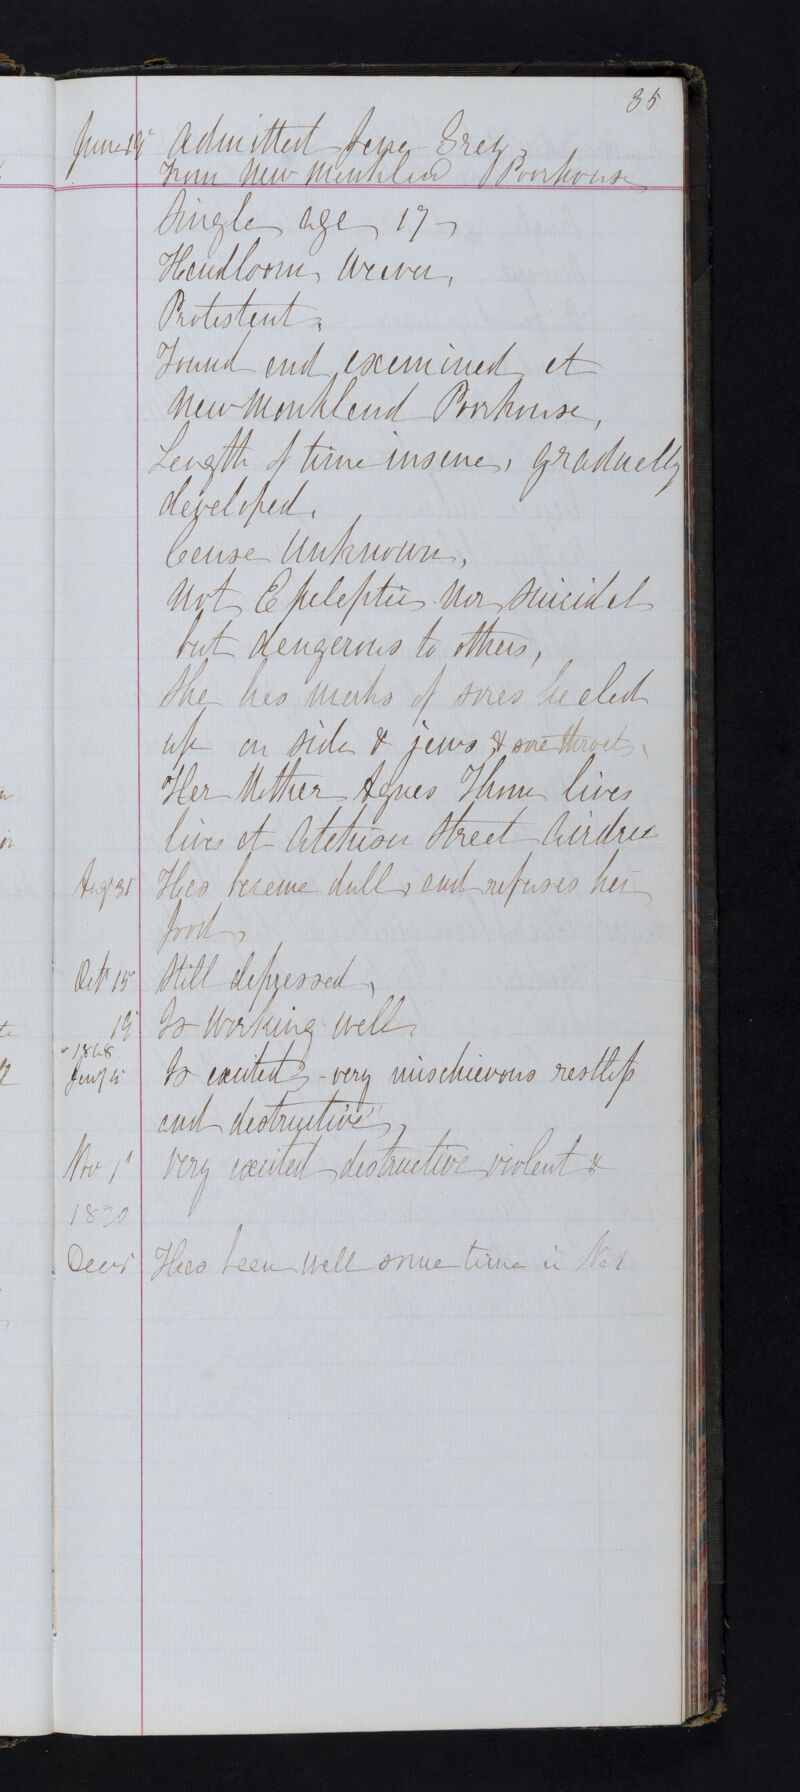 35
June 19th Admitted Jane Grey
From New Monkland Poorhouse
Single age 17
Handloom Weaver,
Protestant,
Found and examined at
New Monkland Poorhouse,
Length of time insane, gradually
developed,
Cause Unknown,
Not Epileptic nor suicidal
but dangerous to others,
She has marks of sores healed
up on side & jaws & sore throat,
Her Mother Agnes Thom lives
lives at Aitchison Street Airdrie
Augt 31 Has become dull, and refuses her
food,
Octr 15 Still depressed,
19 Is working well,
1868
Jany 15 Is excited - very mischievous restless
and destructive,
Nov 1st Very excited destructive violent &
1870
Decr 1 Has been well some time in